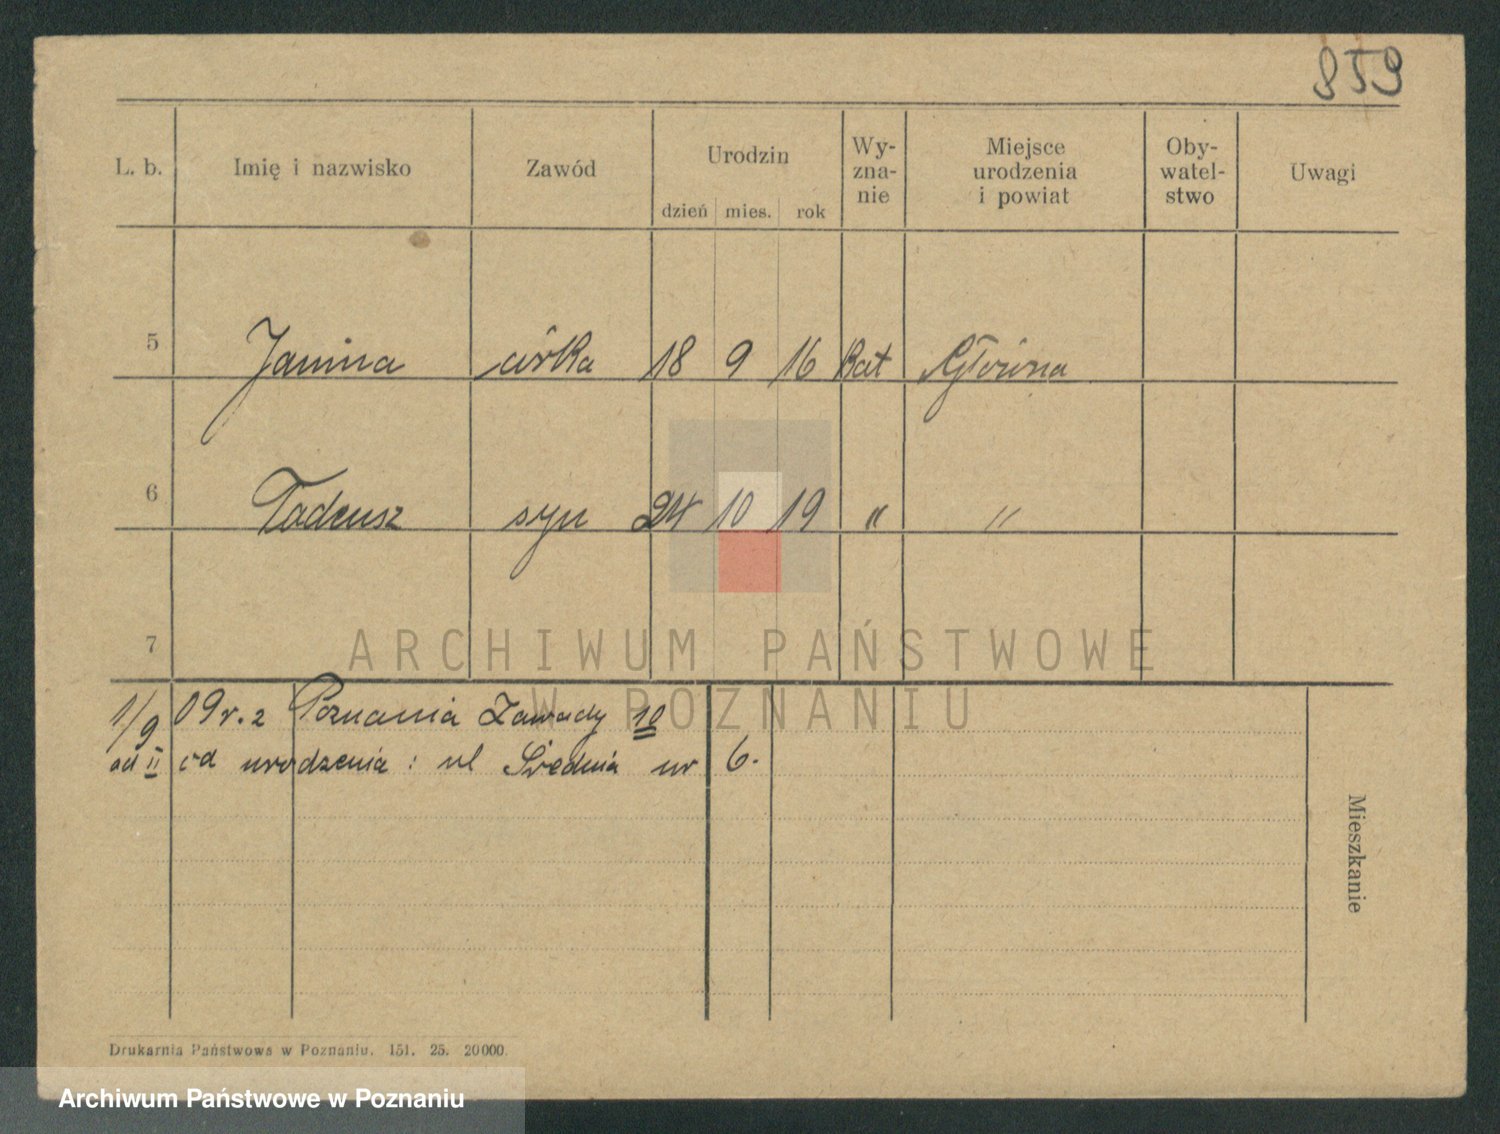 859
L. b. Imię i nazwisko Zawód Urodzin dzień mies. rok Wy-zna-nie Miejsce urodzenia i powiat Oby-watel-stwo Uwagi
5 Janina córka 18 9 16 Kat Główna
6 Tadeusz syn 24 10 19 " "
7
ARCHIWUM PAŃSTWOWE
W POZNANIU
1/9 09 r. z Poznania Zawady 10
od II od urodzenia : ul Średnia nr 6.
Mieszkanie
Drukarnia Państwowa w Poznaniu. 151. 25. 20000.
Archiwum Państwowe w Poznaniu